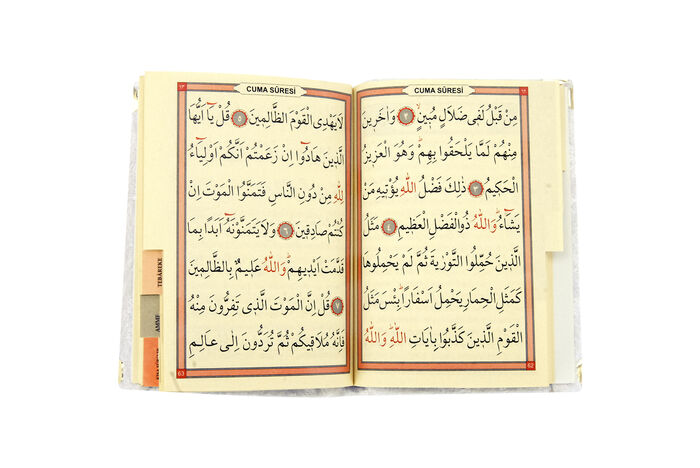 CUMA SÛRESİ
مِنْ قَبْلُ لَفٖي ضَلَالٍ مُبٖينٍ ﴿٢﴾ وَاٰخَرٖينَ
مِنْهُمْ لَمَّا يَلْحَقُوا بِهِمْ وَهُوَ الْعَزٖيزُ
الْحَكٖيمُ ﴿٣﴾ ذٰلِكَ فَضْلُ اللّٰهِ يُؤْتٖيهِ مَنْ
يَشَٓاءُ وَاللّٰهُ ذُوالْفَضْلِ الْعَظٖيمِ ﴿٤﴾ مَثَلُ
الَّذٖينَ حُمِّلُوا التَّوْرٰيةَ ثُمَّ لَمْ يَحْمِلُوهَا
كَمَثَلِ الْحِمَارِ يَحْمِلُ اَسْفَارًا بِئْسَ مَثَلُ
الْقَوْمِ الَّذٖينَ كَذَّبُوا بِاٰيَاتِ اللّٰهِ وَاللّٰهُ
62
CUMA SÛRESİ
لَا يَهْدِى الْقَوْمَ الظَّالِمٖينَ ﴿٥﴾ قُلْ يَٓا اَيُّهَا
الَّذٖينَ هَادُٓوا اِنْ زَعَمْتُمْ اَنَّكُمْ اَوْلِيَٓاءُ
لِلّٰهِ مِنْ دُونِ النَّاسِ فَتَمَنَّوُا الْمَوْتَ اِنْ
كُنْتُمْ صَادِقٖينَ ﴿٦﴾ وَلَا يَتَمَنَّوْنَهُٓ اَبَدًا بِمَا
قَدَّمَتْ اَيْدٖيهِمْ وَاللّٰهُ عَلٖيمٌ بِالظَّالِمٖينَ
﴿٧﴾ قُلْ اِنَّ الْمَوْتَ الَّذٖى تَفِرُّونَ مِنْهُ
فَاِنَّهُ مُلَاقٖيكُمْ ثُمَّ تُرَدُّونَ اِلٰى عَالِمِ
63
TEBAREKE
AMME